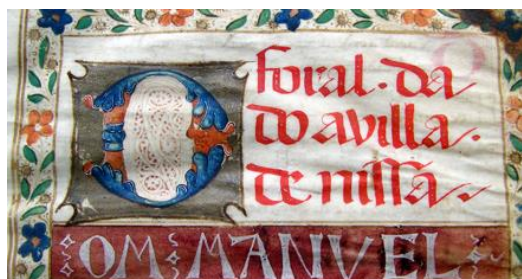 foral·da
do avilla·
de nissa
OM MANVEL